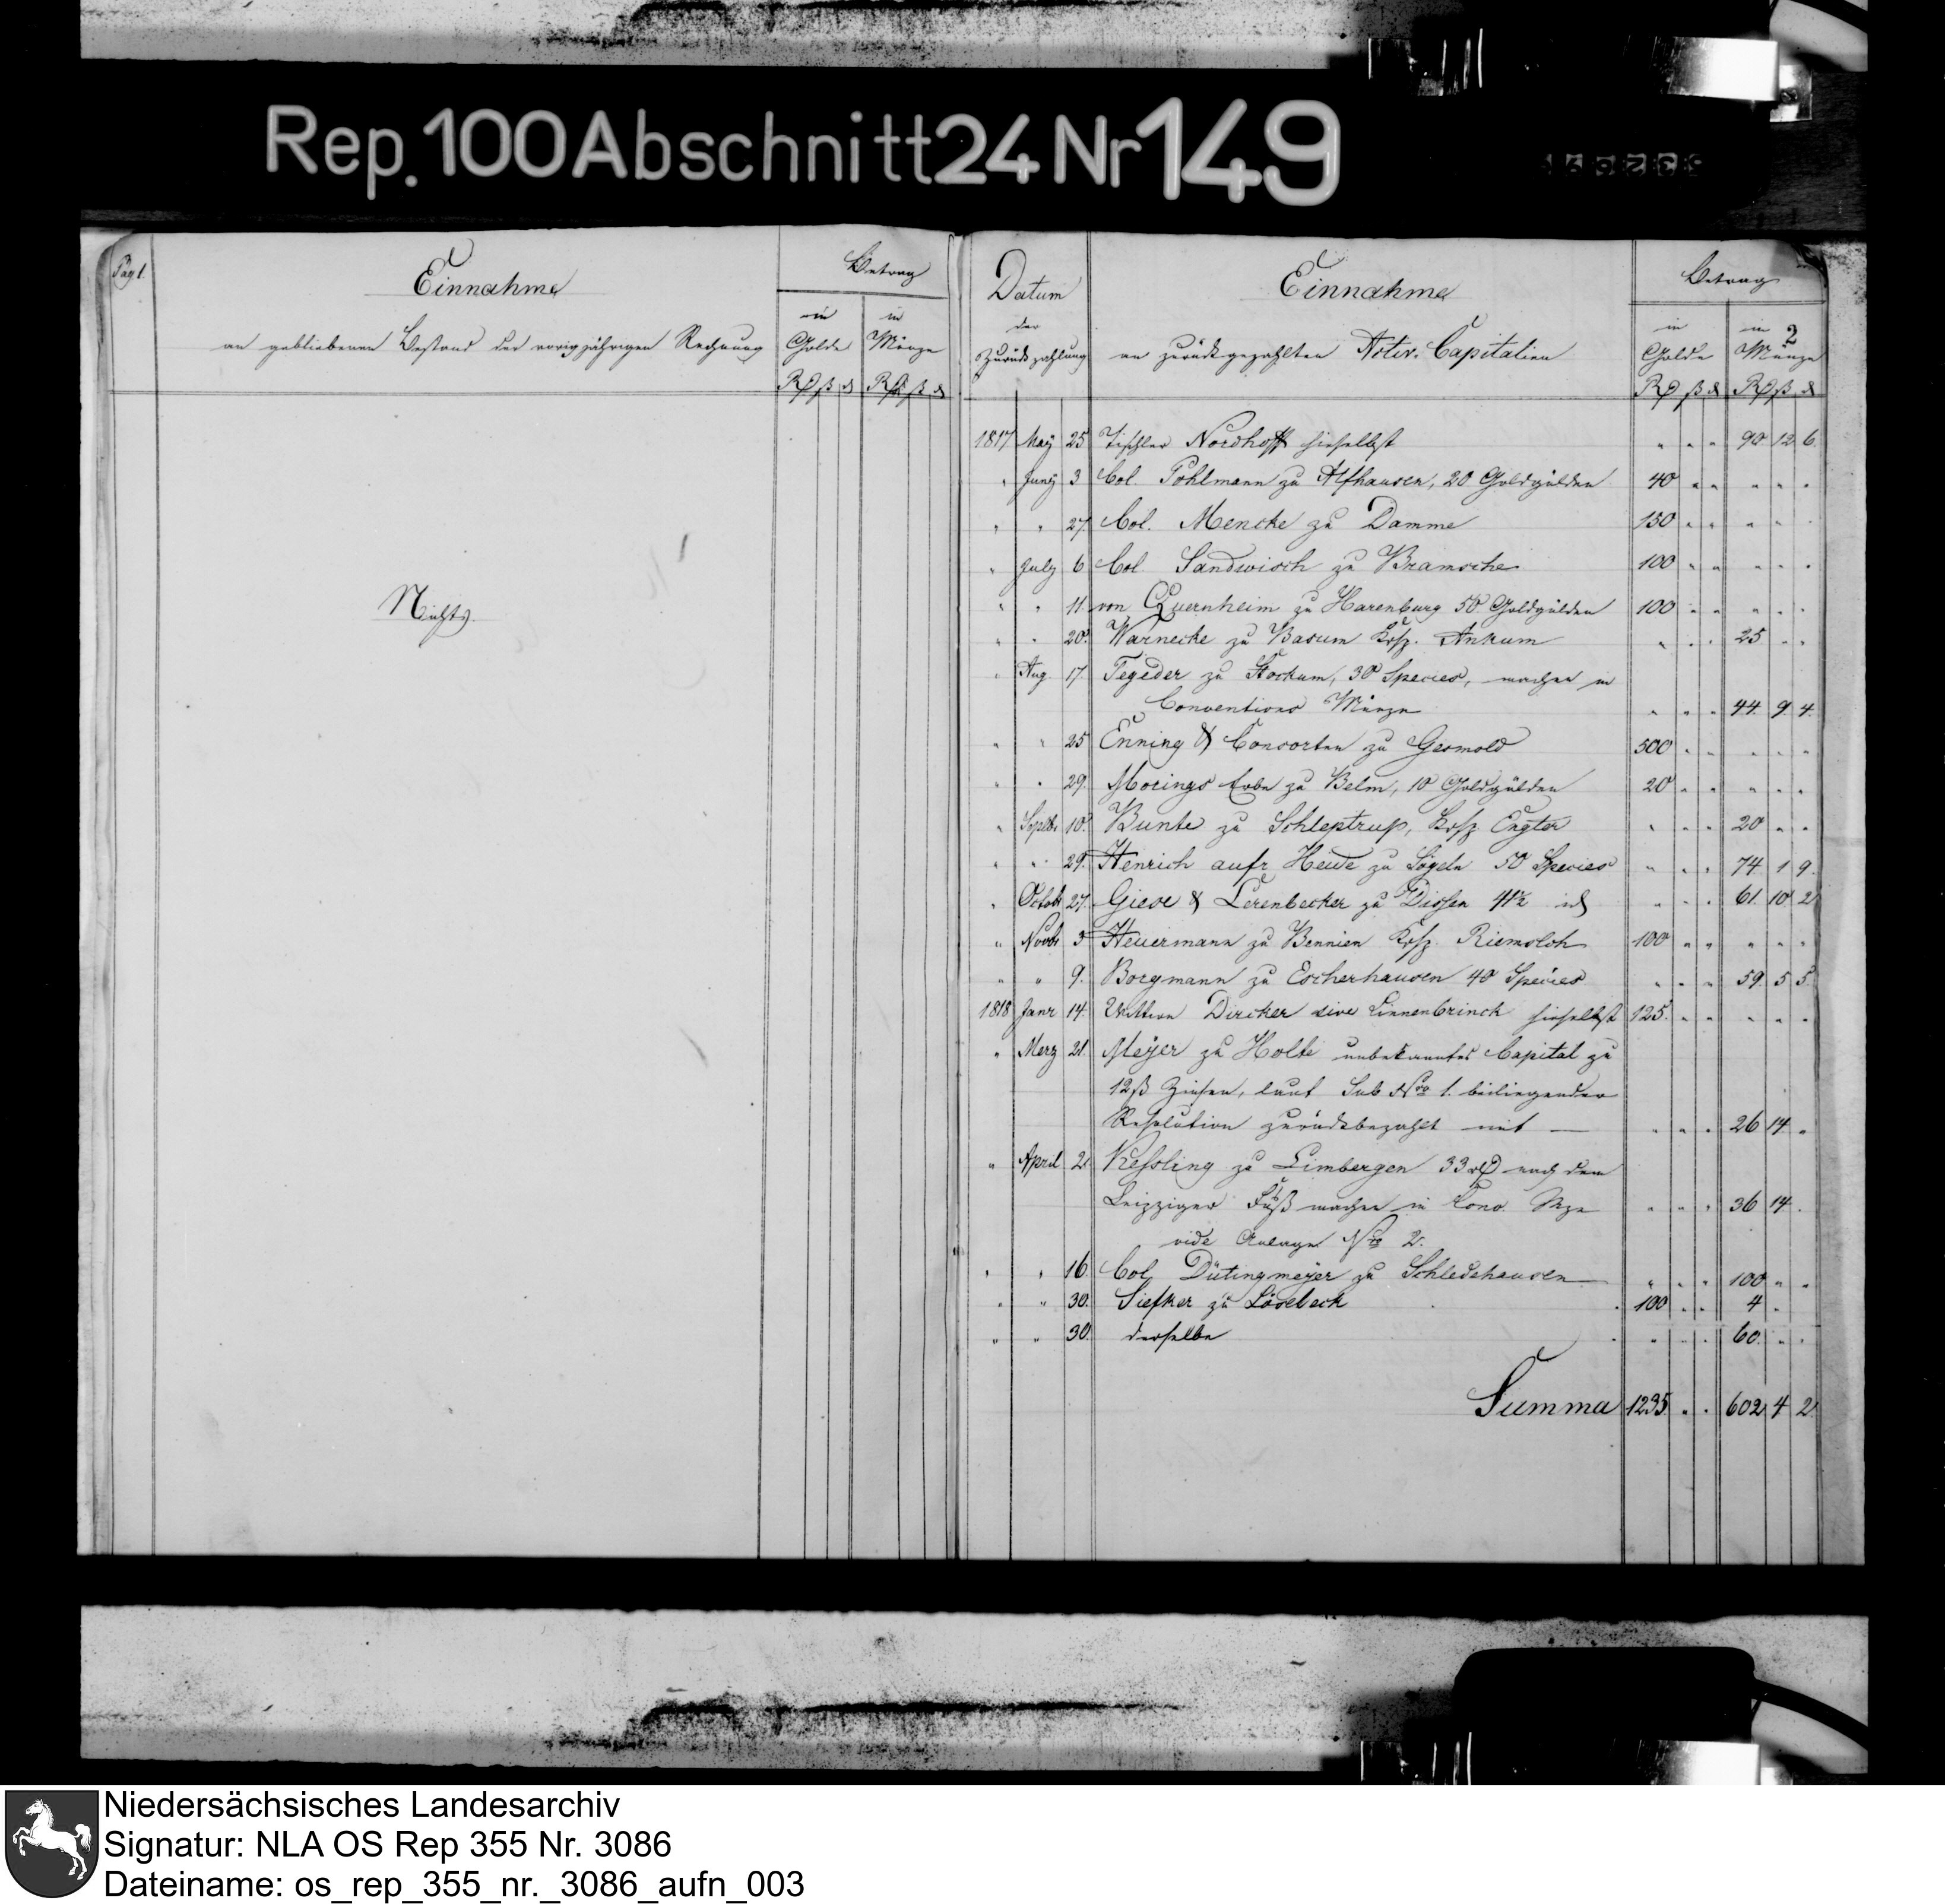 Rep. 100 Abschnitt 24 Nr 149
Pag 1.
Einnahme
an gebliebenen Bestand der vorigjährigen Rechnung
Betrag
in Golde
in Münze
Rthlr ß d
Rthlr ß d
Nichts.
Datum
der
Zurückzahlung
Einnahme
an zurückgezahlten Activ-Capitalien
Betrag
in Golde
in Münze
2
Rthlr ß d
Rthlr ß d
1817 May 25 Tischler Nordhoff hieselbst " " " 90 12 6.
" Juny 3 Col. Pohlmann zu Alfhausen, 20 Goldgülden 40 " " " " "
" " 27 Col. Mencke zu Damme 150 " " " " "
" July 6 Col. Sandwisch zu Bramsche 100 " " " " "
" " 11. von Quernheim zu Harenburg 50 Goldgülden 100 " " " " "
" " 20. Warnecke zu Basum Krsp. Ankum " " " 25 " "
" Aug. 17. Tegeder zu Stockum, 30 Species, machen in
Conventions Münze " " " 44. 9. 4.
" " 25 Enning & Consorten zu Gesmold 500 " " " " "
" " 29. Morings Erbe zu Belm, 10 Goldgülden 20 " " " " "
" Septbr 10. Bunte zu Schleptrup, Krsp. Engter " " " 20 " "
" " 29. Henrich aufr Heide zu Sögeln 50 Species " " " 74. 1 9.
" Octobr 27. Giese & Lerenbecker zu Dissen " " " 61. 10 2
" Novbr 3 Heuermann zu Bennien Krsp. Riemsloh 100 " " " " "
" " 9. Borgmann zu Escherhausen 40 Species " " " 59. 5 5.
1818 Janr 14. Wittwe Dircker sive Linnenbrinck hieselbst 125. " " " " "
" Merz 21. Meyer zu Holte unbekanntes Capital zu
12ß Zinsen, laut Sub Nro 1. beiliegender
Resolution zurückbezahlt mit — " " " 26 14 "
" April 2 Kessling zu Limbergen 33 rthlr nach dem
Leipziger Fuß machen in Conv. Mze " " " 36 14.
vide Anlage Nro 2.
" " 16 Col. Dütingmeyer zu Schledehausen " " " 100 " "
" " 30. Siefker zu Lösebeck 100 " " 4 "
" " 30 derselbe " " " 60. " "
Summa 1235 " " 602 4 2.
Niedersächsisches Landesarchiv
Signatur: NLA OS Rep 355 Nr. 3086
Dateiname: os_rep_355_nr._3086_aufn_003